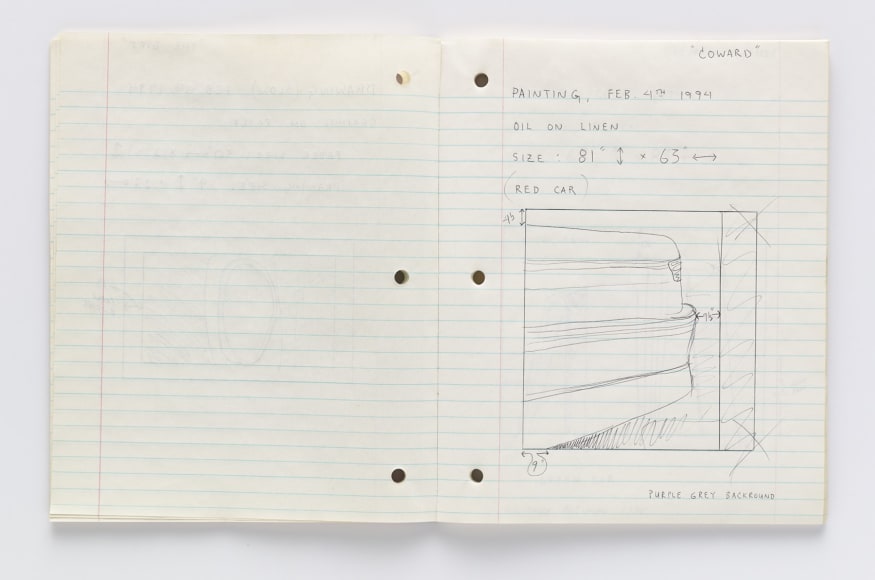 "COWARD"
PAINTING, FEB. 4TH 1994
OIL ON LINEN
SIZE : 81" ↕ × 63" ↔
(RED CAR)
9"
PURPLE GREY BACKROUND